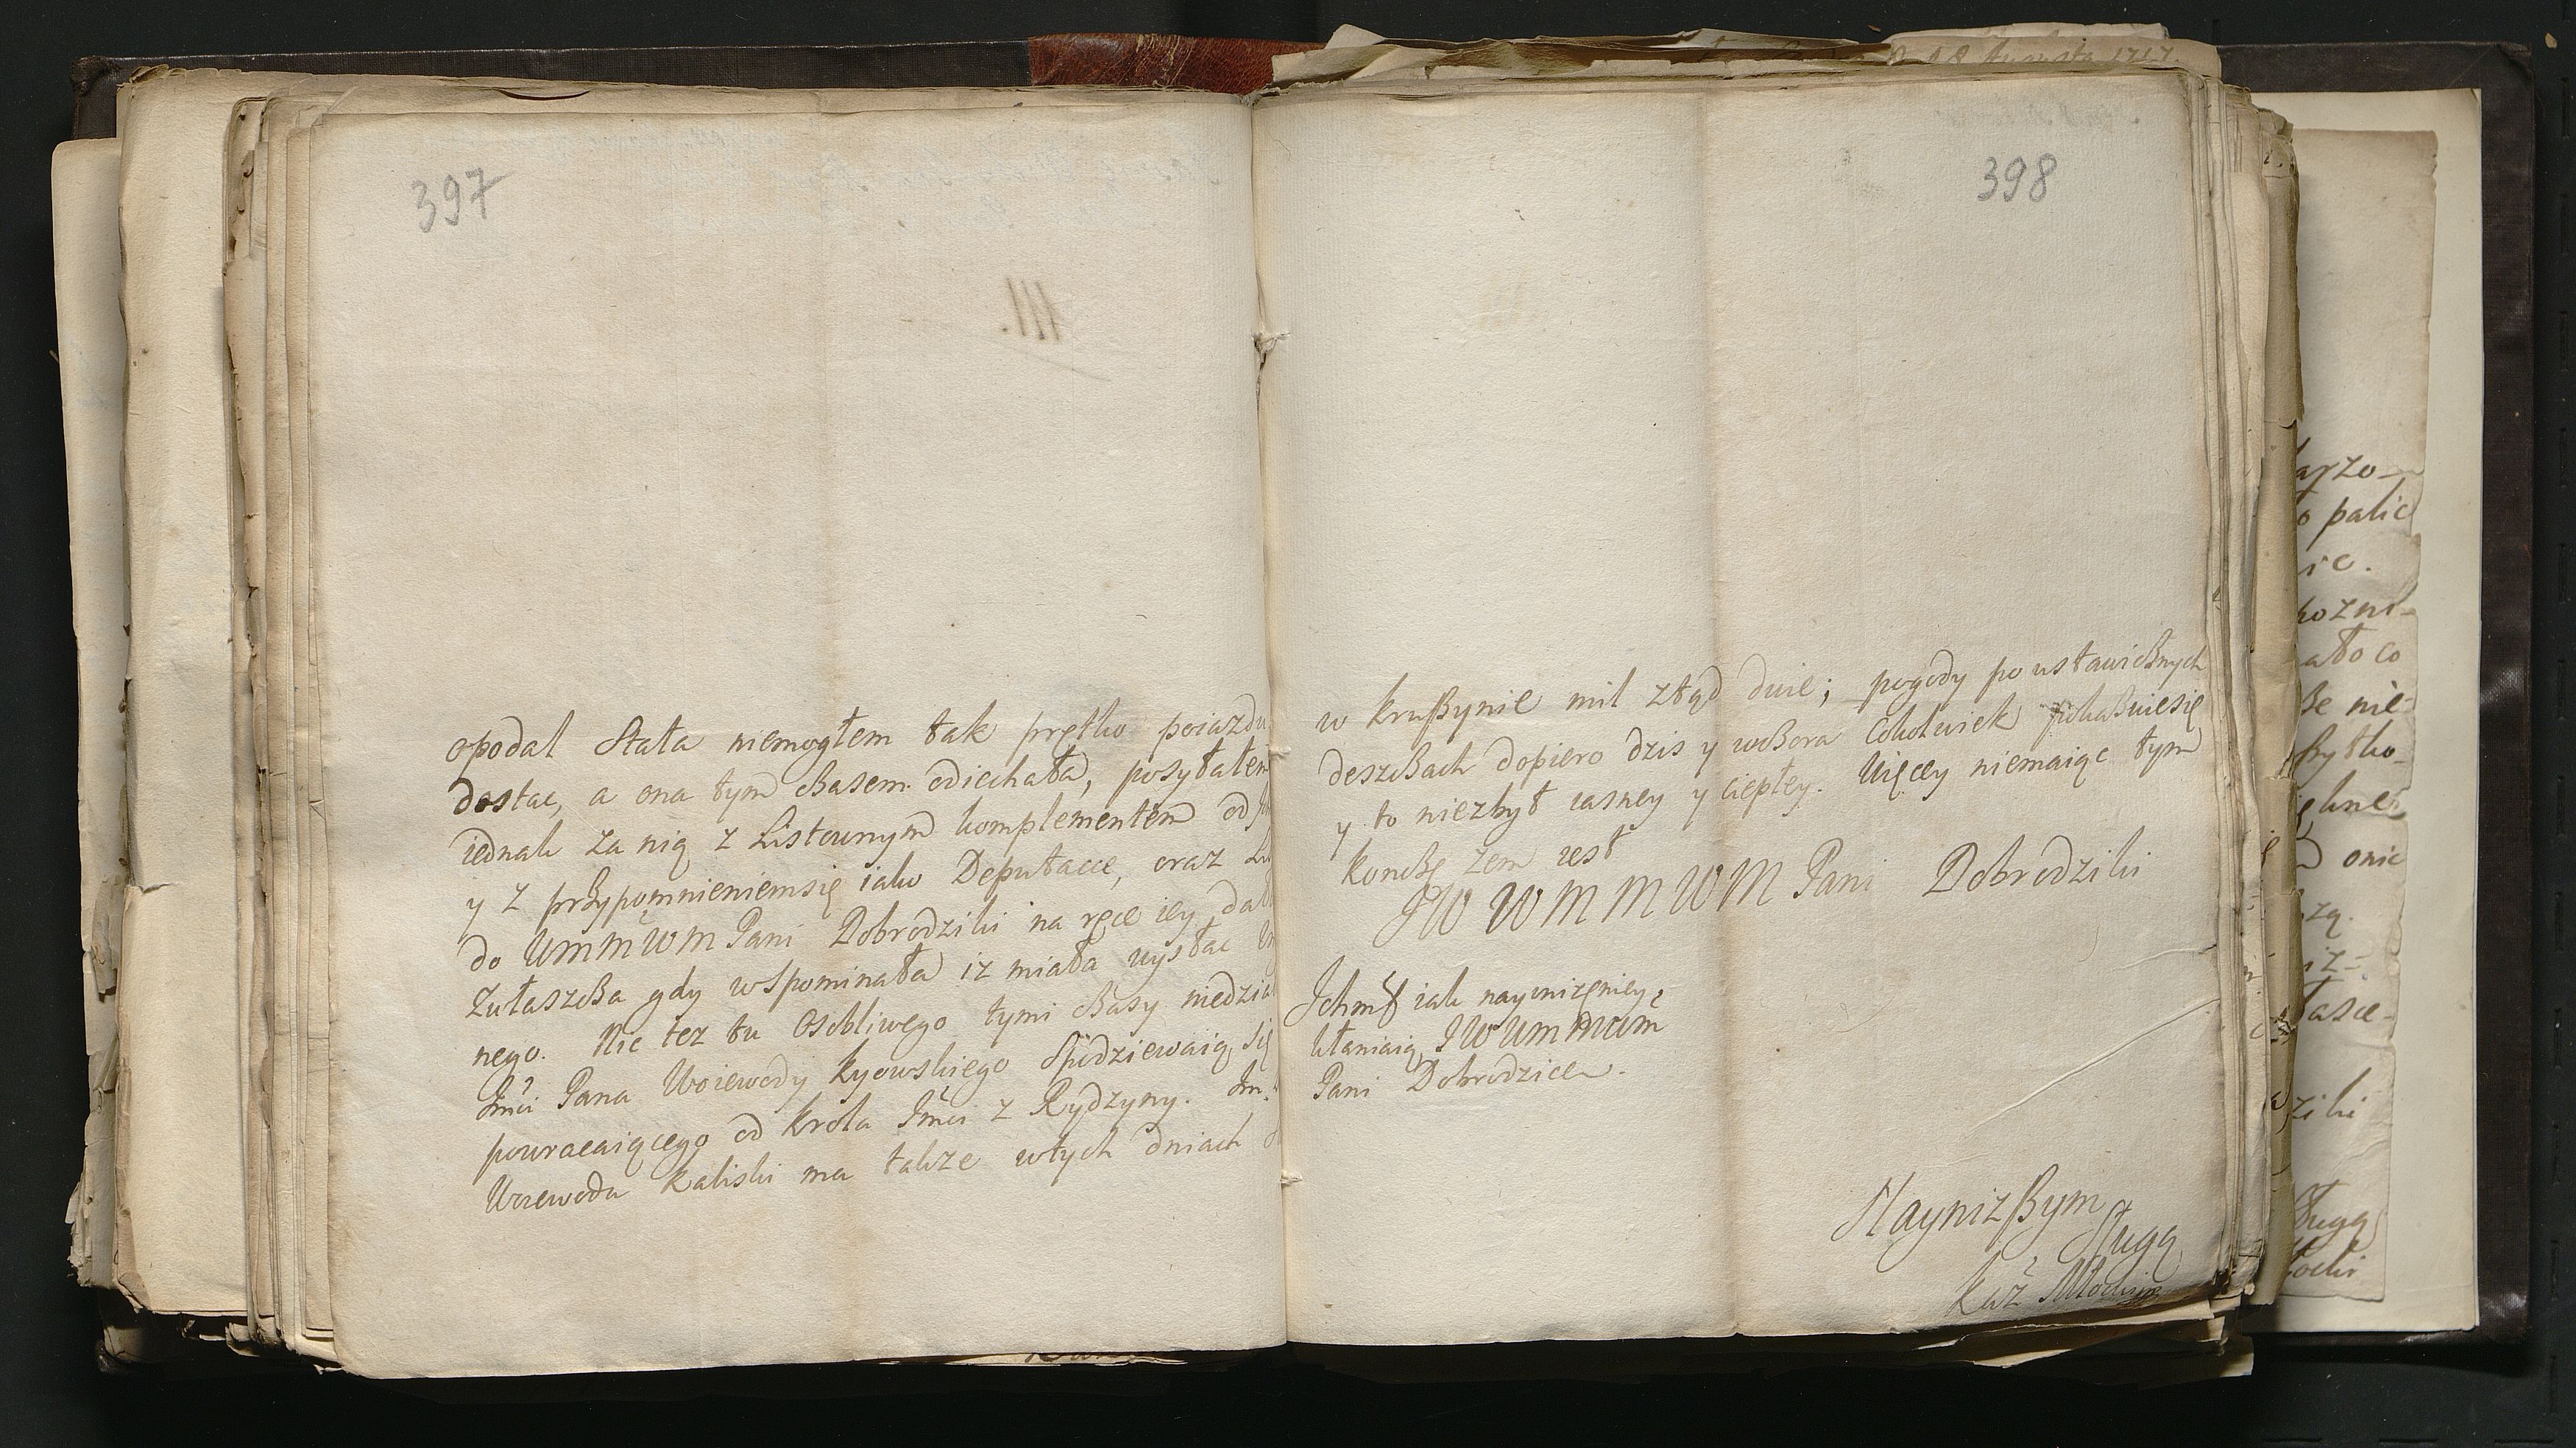 397
opodal stała niemogłem tak prętko poiazdu
dostac, a ona tym czasem odiechała, posyłałem
iednak za nią z Listownym komplementem od
y z przypomnieniemsię iako Deputacie, oraz
do WMMWM Pani Dobrodziki na ręce iey dał
Zwłaszcza gdy wspominała iz miała wysłac
nego. Nic tez tu Osobliwego tymi czasy niedzia
Jmci Pana Woiewody kyowskiego spodziewaią się
powracaiącego od krola Jmci z Rydzyny. Jm.
Woiewoda kaliski ma takze wtych dniach
398
w kruszynie mil ztąd dwie; pogody po ustawicznych
deszczach dopiero dzis y wczora Cokolwiek
y to niezbyt iasney y ciepłey. Więcey niemaiąc tym
konczę zem iest
JW W M M W M Pani Dobrodziki
Ichmść iak nayunizeniey
kłaniaią JWWMMWM
Pani Dobrodzice.
Nayniszym
sługą